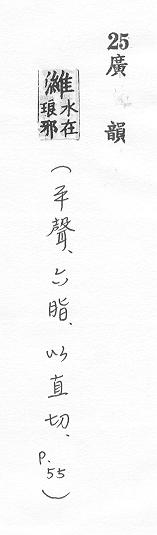 25廣韻
濰水在琅邪
(平聲、六脂、以直切、P.55)